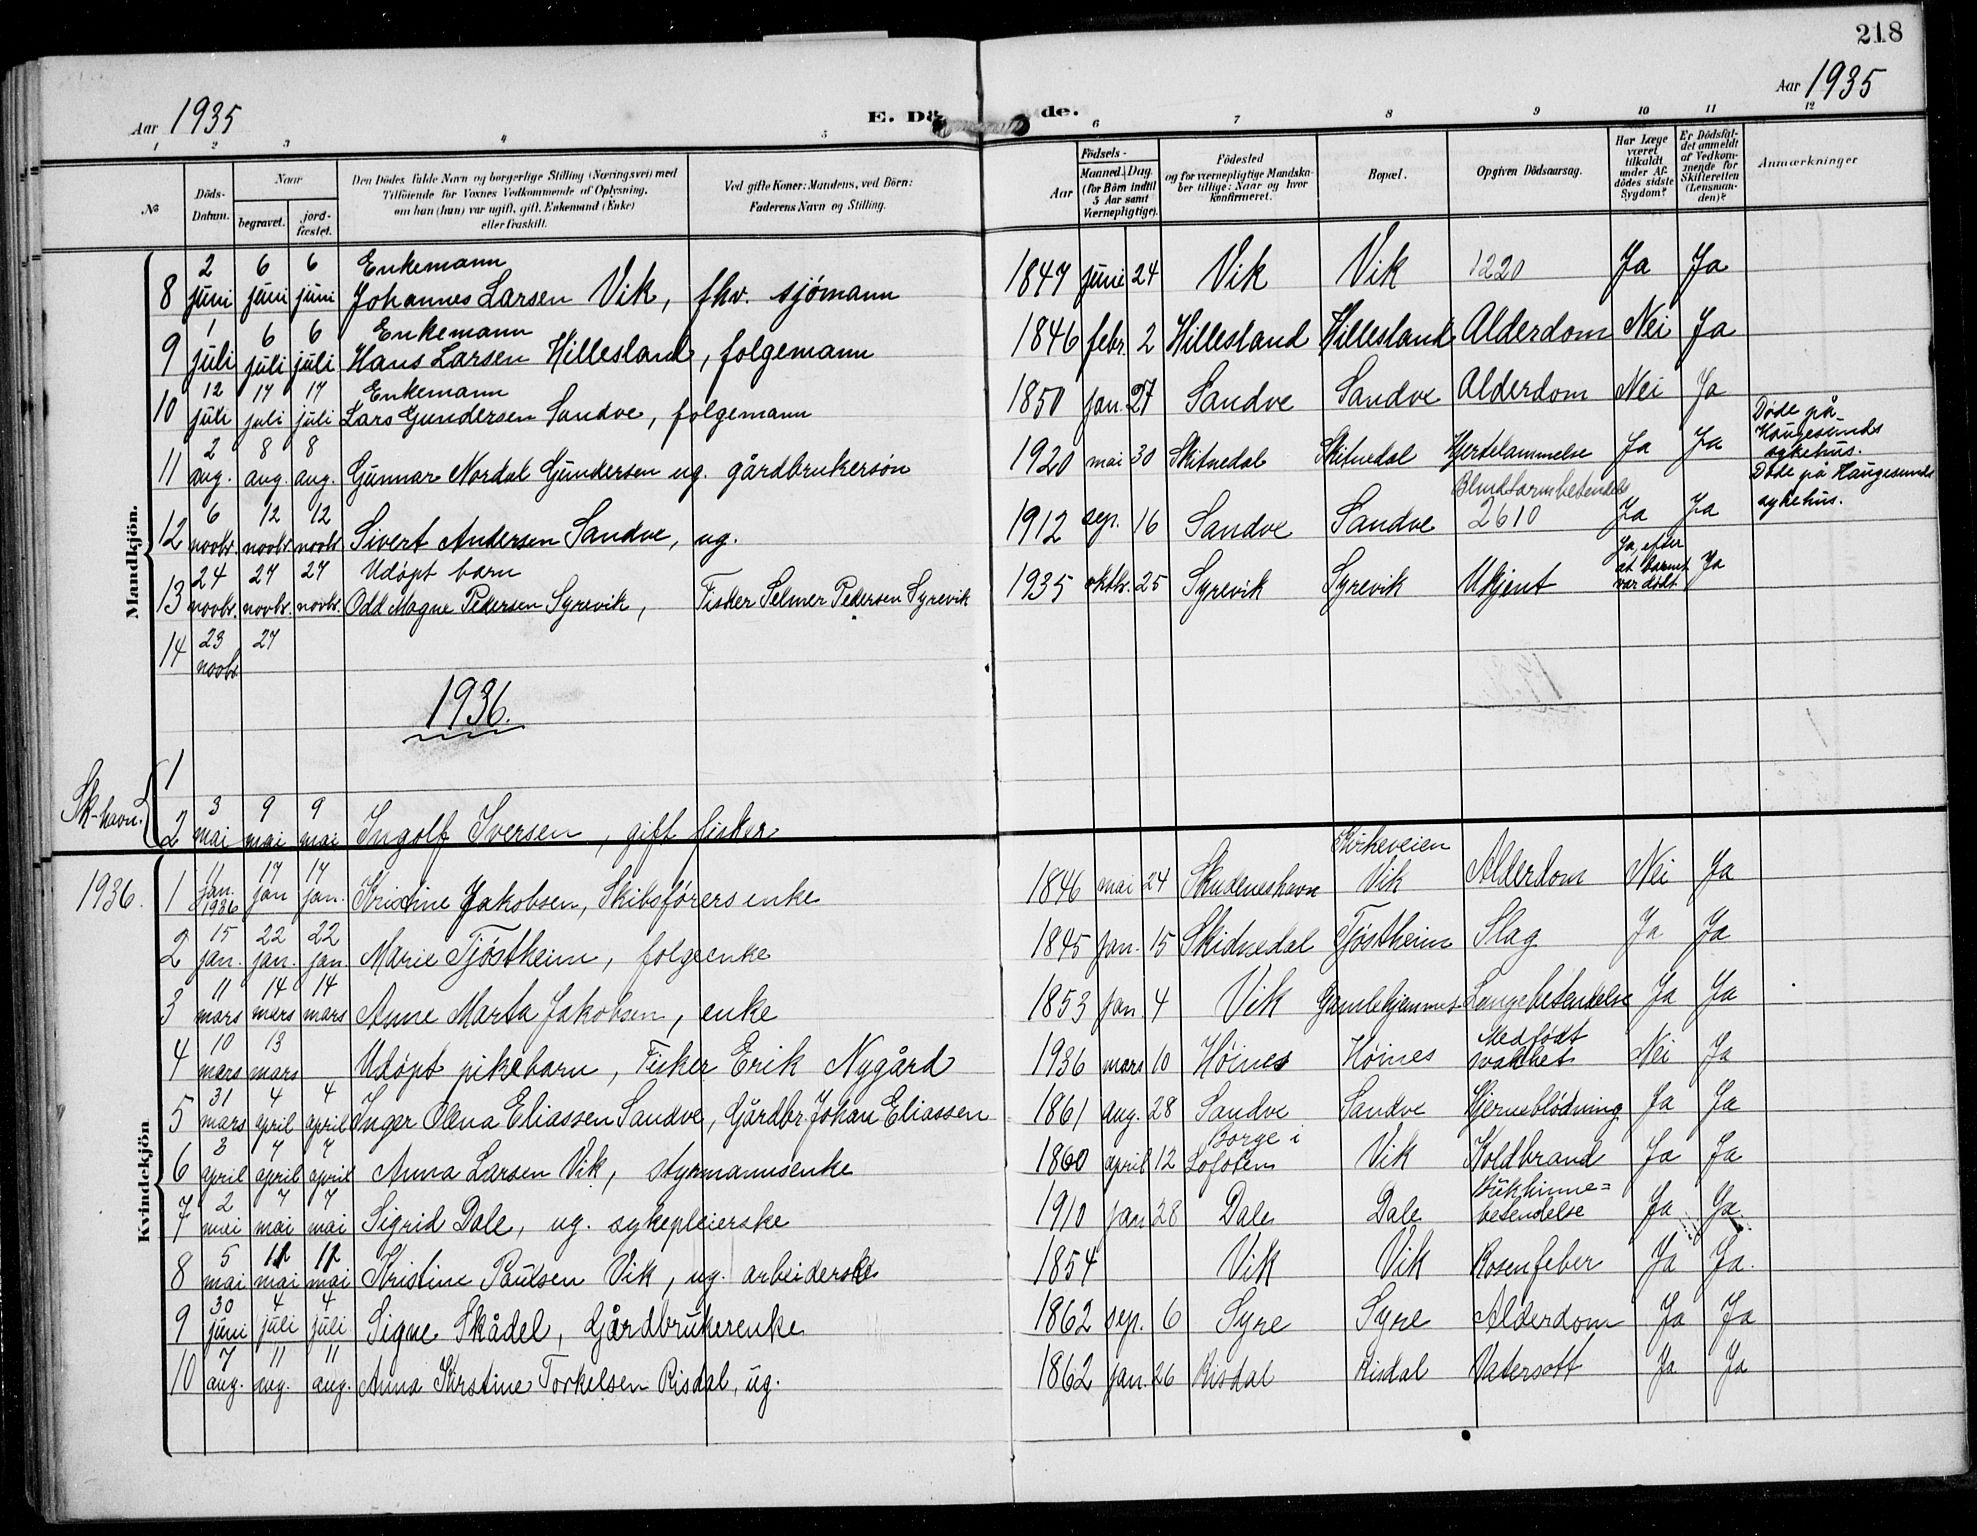 218
Aar 1935
E. Dø de.
Aar 1935
1 2 3 4 5 6 7 8 9 10 11 12
No
Döds-Datum.
Naar
begravet.
jord-fæstet.
Den Dödes fulde Navn og borgerlige Stilling (Næringsvei) med
Tilföiende for Voxnes Vedkommende af Oplysning,
om han (hun) var ugift, gift, Enkemand (Enke)
eller fraskilt.
Ved gifte Koner: Mandens, ved Börn:
Faderens Navn og Stilling.
Födsels-
Aar
Maaned. Dag.
(for Börn indtil
5 Aar samt
Værnepligtige).
Födested
og for værnepligtige Mandska-
ber tillige: Naar og hvor
konfirmeret.
Bopæl.
Opgiven Dödsaarsag.
Har Læge
været
tilkaldt
under Af-
dödes sidste
Sygdom?
Er Dödsfal-
det anmeldt
af Vedkom-
mende for
Skifteretten
(Lensman-
den)?
Anmærkninger
Mandkjön.
8 2 juni 6 juni 6 juni Enkemann Johannes Larsen Vik, fhv. sjömann 1847 juni 24 Vik Vik 1220 Ja Ja
9 1 juli 6 juli 6 juli Enkemann Hans Larsen Hillesland, folgemann 1846 febr. 2 Hillesland Hillesland Alderdom Nei Ja
10 12 juli 17 juli 17 juli Enkemann Lars Gundersen Sandve, folgemann 1850 jan. 27 Sandve Sandve Alderdom Nei Ja
11 2 aug. 8 aug. 8 aug. Gunnar Nordal Gundersen ug. gårdbrukersön 1920 mai 30 Skitnedal Skitnedal Hjertelammelse Ja Ja Døde på Haugesunds sykehus.
12 6 novbr 12 novbr 12 novbr Sivert Andersen Sandve, ug. 1912 sep. 16 Sandve Sandve Blindtarmbetendels 2610 Ja Ja Døde på Haugesunds sykehus.
13 24 novbr. 27 novbr. 27 novbr. Udöpt barn Odd Magne Pedersen Syrevik, Fisker Selmer Pedersen Syrevik 1935 oktbr. 25 Syrevik Syrevik Ukjent Ja, efter at barnet var dødt Ja
14 23 novbr 27
1936.
Sk-havn.
1
2 3 mai 9 mai 9 mai Ingolf Iversen, gift fisker
Kvindekjön
1936.
1 11 jan. 1936 17 jan 17 jan. Kristine Jakobsen, Skibsførers enke 1846 mai 24 Skudeneshavn Kirkeveien Vik Alderdom Nei Ja
2 15 jan. 22 jan. 22 jan Marie Tjöstheim, folgeenke 1845 jan. 15 Skidnedal Tjöstheim Slag Ja Ja
3 11 mars 14 mars 14 mars Anne Marta Jakobsen, enke 1853 jan. 4 Vik Gamlehjemmet Lungebetendelse Ja Ja
4 10 mars 13 mars Udöpt pikebarn, Fisker Erik Nygård 1936 mars 10 Høines Høines Medfødt svakhet Nei Ja
5 31 mars 4 april 4 april Inger Olena Eliassen Sandve, Gårdbr. Johan Eliassen 1861 aug. 28 Sandve Sandve Hjerneblödning Ja Ja
6 3 april 7 april 7 april Anna Larsen Vik, styrmannsenke 1860 april 12 Borge i Lofoten Vik Koldbrand Ja Ja
7 2 mai 7 mai 7 mai Sigrid Dale, ug. sykepleierske 1910 jan 28 Dale Dale Bukhinne=betendelse Ja Ja
8 5 mai 12 mai 12 mai Kristine Paulsen Vik, ug. arbeiderske 1854 Vik Vik Rosenfeber Ja Ja.
9 30 juni 4 juli 4 juli Signe Skådel, Gårdbrukerenke 1862 sep. 6 Syre Syre Alderdom Ja Ja
10 7 aug. 11 aug. 11 aug. Anna Kirstine Torkelsen Risdal, ug. 1862 jan. 26 Risdal Risdal Vatersott Ja Ja